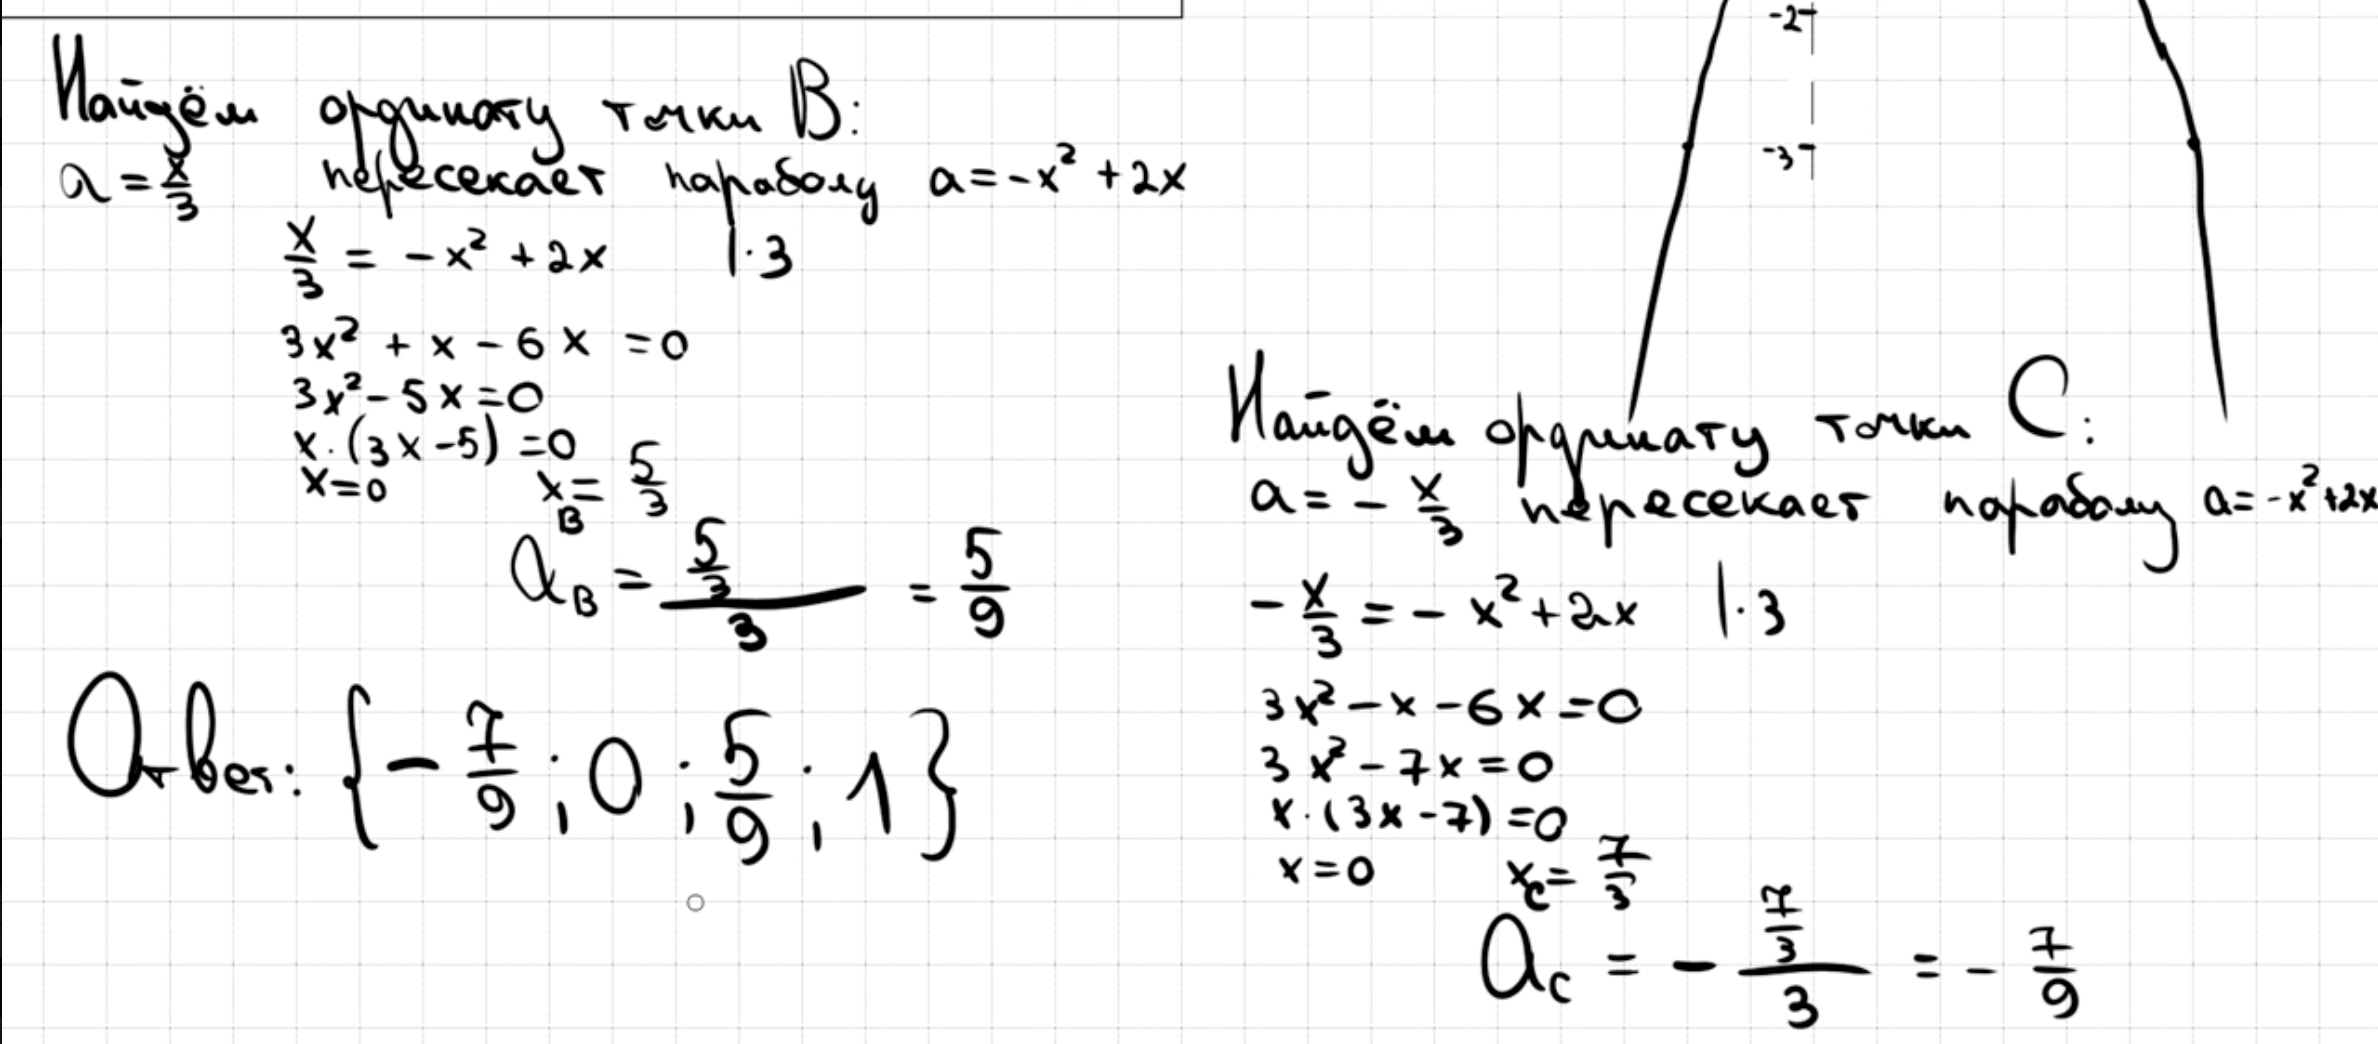 Найдём ординату точки B:
a = x/3 пересекает параболу a = -x² + 2x
x/3 = -x² + 2x |·3
3x² + x - 6x = 0
3x² - 5x = 0
x·(3x - 5) = 0
x = 0 x_B = 5/3
a_B = (5/3)/3 = 5/9
Ответ: {-7/9; 0; 5/9; 1}
-2
-3
Найдём ординату точки C:
a = -x/3 пересекает параболу a = -x² + 2x
-x/3 = -x² + 2x |·3
3x² - x - 6x = 0
3x² - 7x = 0
x·(3x - 7) = 0
x = 0 x_C = 7/3
a_C = -(7/3)/3 = -7/9